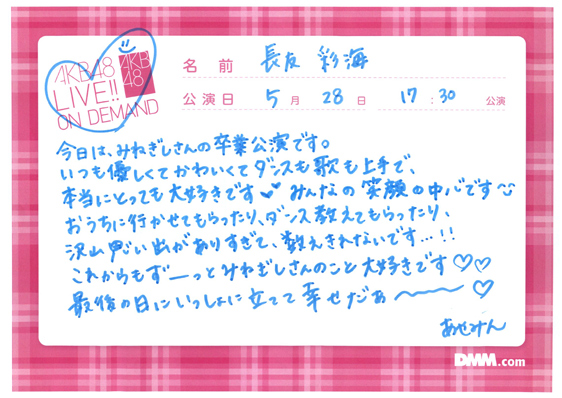 AKB48
LIVE!!
ON DEMAND
AKB
48
名前 長友 彩海
公演日 5月 28日 17:30 公演
今日は、みねぎしさんの卒業公演です。
いつも優しくてかわいくてダンスも歌も上手で、
本当にとっても大好きです♥♥ みんなの笑顔の中心です
おうちに行かせてもらったり、ダンス教えてもらったり、
沢山思い出がありすぎて、数えきれないです…!!
これからもずーーっとみねぎしさんのこと大好きです♡♡
最後の日にいっしょに立てて幸せだぁ〜〜♡
あやみん
DMM.com